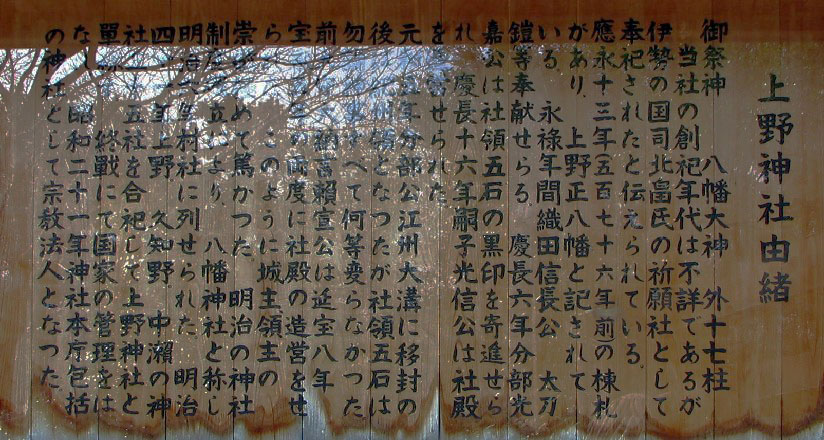 上野神社由緒
御祭神　八幡大神　外十七柱
当社の創祀年代は不詳であるが
伊勢の国司北畠氏の祈願社として
奉祀されたと伝えられている。
應永十三年(五百七十六年前)の棟札
があり、上野正八幡と記されて
いる。永禄年間織田信長公、太刀
鎧等奉献せらる。慶長六年分部光
嘉公は社領五石の黒印を寄進せら
れ、慶長十六年嗣子光信公は社殿
を せられた。
元 五年分部公江州大溝に移封の
後 州領となつたが社領五石は
勿 すべて何等変らなかつた
前 納言賴宣公は延宝八年
宝 の両度に社殿の造営をせ
ら このように城主領主の
崇 めて篤かつた。明治の神社
制 立により、八幡神社と称し
明治 年村社に列せられた。明治
四 年上野、久知野、中瀬の神
社 五社を合祀して上野神社と
單 終戰にて国家の管理をは
なし 昭和二十一年神社本庁包括
の神社として宗教法人となつた